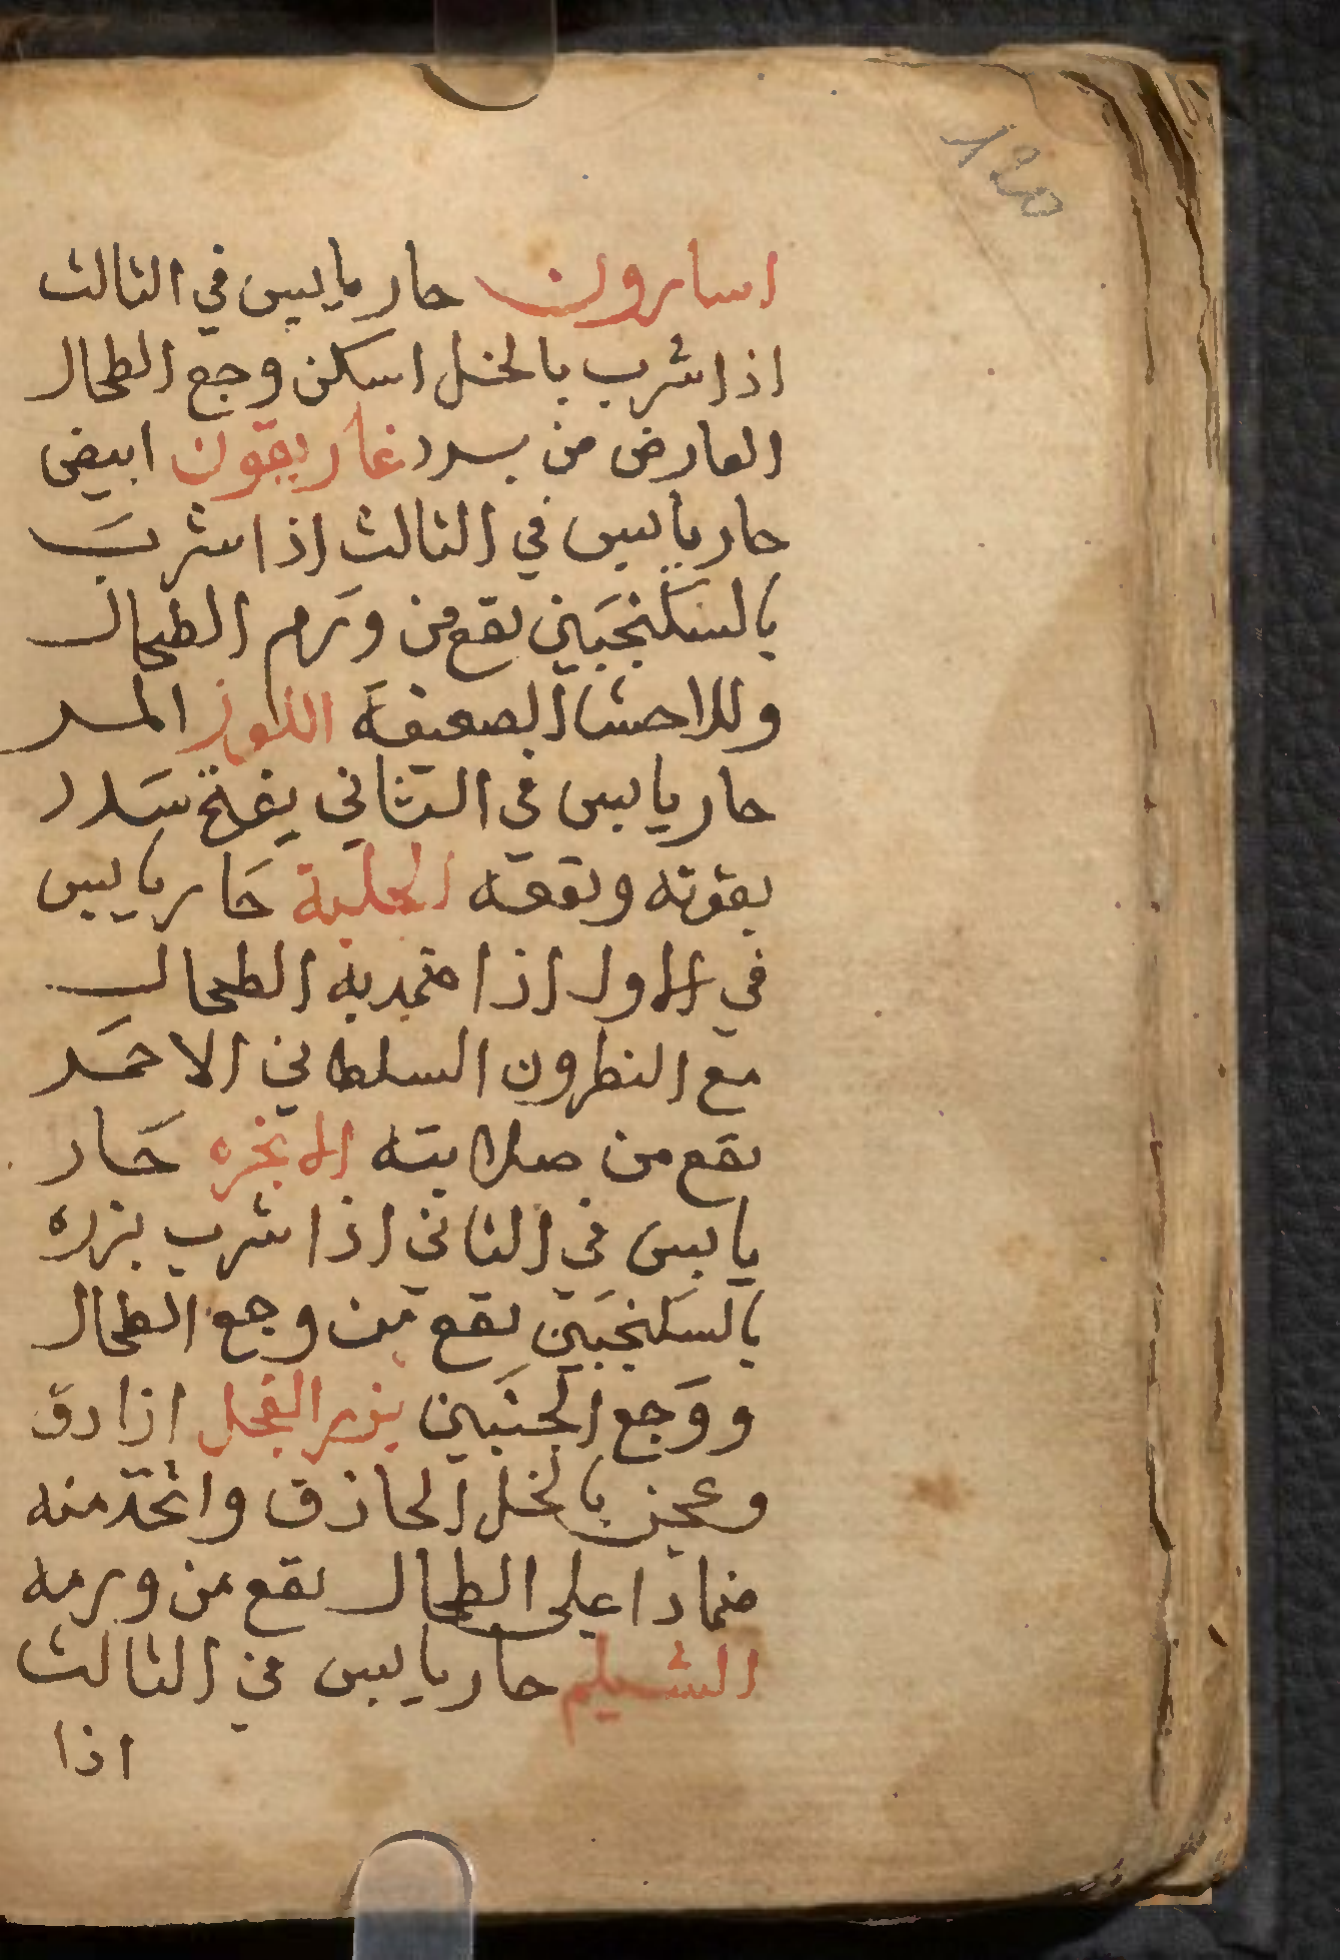 اسارون حار يابس في الثالث
اذا شرب بالخل اسكن وجع الطحال
العارض من سدد غاريقون ابيض
حار يابس في الثالث اذا شرب
بالسكنجبين نفع من ورم الطحال
وللاحشا الضعيفة اللوز المر
حار يابس في الثاني يفتح سدد
بقوته ونفعه الحلبة حار يابس
في الاول اذا ضمد به الطحال
مع النطرون السلطاني الاحمر
نفع من صلابته الانجره حار
يابس في الثاني اذا شرب بزره
بالسكنجبين نفع من وجع الطحال
ووجع الجنبين بزر الفجل اذا دق
وعجن بالخل الحاذق واتخذ منه
ضمادا على الطحال نفع من ورمه
الشيلم حار يابس في الثالث
اذا